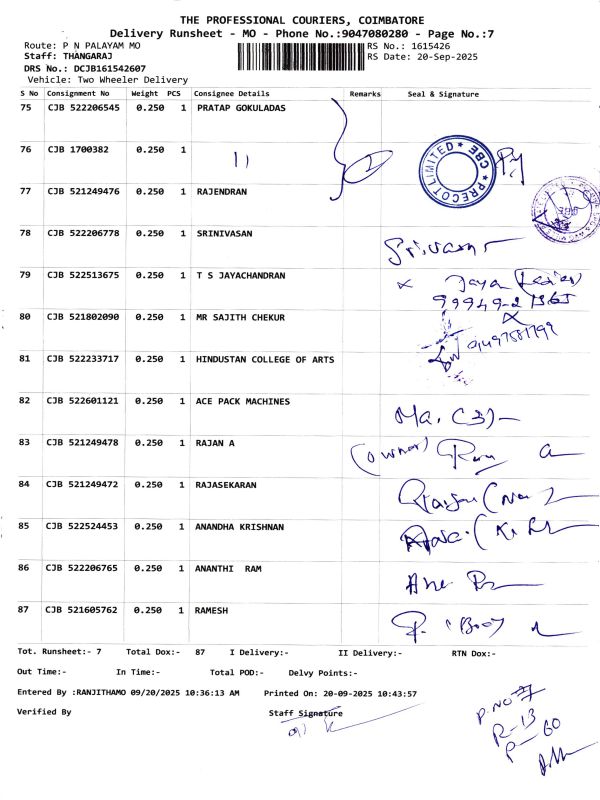 THE PROFESSIONAL COURIERS, COIMBATORE
Delivery Runsheet - MO - Phone No.:9047080280 - Page No.:7
Route: P N PALAYAM MO
RS No.: 1615426
Staff: THANGARAJ
RS Date: 20-Sep-2025
DRS No.: DCJB161542607
Vehicle: Two Wheeler Delivery
S No Consignment No Weight PCS Consignee Details Remarks Seal & Signature
75 CJB 522206545 0.250 1 PRATAP GOKULADAS
76 CJB 1700382 0.250 1
PRECOT LIMITED * CBE *
77 CJB 521249476 0.250 1 RAJENDRAN
78 CJB 522206778 0.250 1 SRINIVASAN
79 CJB 522513675 0.250 1 T S JAYACHANDRAN
80 CJB 521802090 0.250 1 MR SAJITH CHEKUR
81 CJB 522233717 0.250 1 HINDUSTAN COLLEGE OF ARTS
82 CJB 522601121 0.250 1 ACE PACK MACHINES
83 CJB 521249478 0.250 1 RAJAN A (owner)
84 CJB 521249472 0.250 1 RAJASEKARAN
85 CJB 522524453 0.250 1 ANANDHA KRISHNAN
86 CJB 522206765 0.250 1 ANANTHI RAM
87 CJB 521605762 0.250 1 RAMESH
Tot. Runsheet:- 7 Total Dox:- 87 I Delivery:- II Delivery:- RTN Dox:-
Out Time:- In Time:- Total POD:- Delvy Points:-
Entered By :RANJITHAMO 09/20/2025 10:36:13 AM Printed On: 20-09-2025 10:43:57
Verified By Staff Signature
R-13
P-60